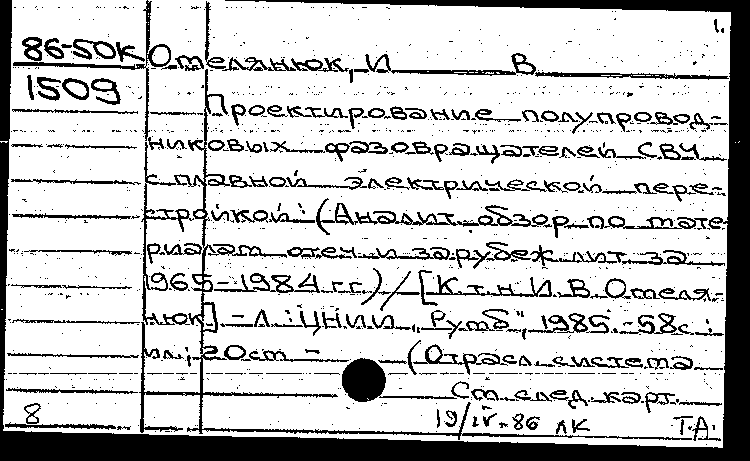 1.
86-50К Отелянюк, И В
1509
Проектирование полупровод-
никовых фазовращателей СВЧ
с плавной электрической пере-
стройкой : (Аналит. обзор по мате
риалам отеч. и зарубеж. лит. за
1965-1984 гг.) / [К.т.н. И.В. Отеля-
нюк]. - Л. : ЦНИИ „Румб", 1985. - 58с. :
ил.; 20см - (Отрасл. система
См. след. карт.
8 19/IV-86 ЛК Т.А.